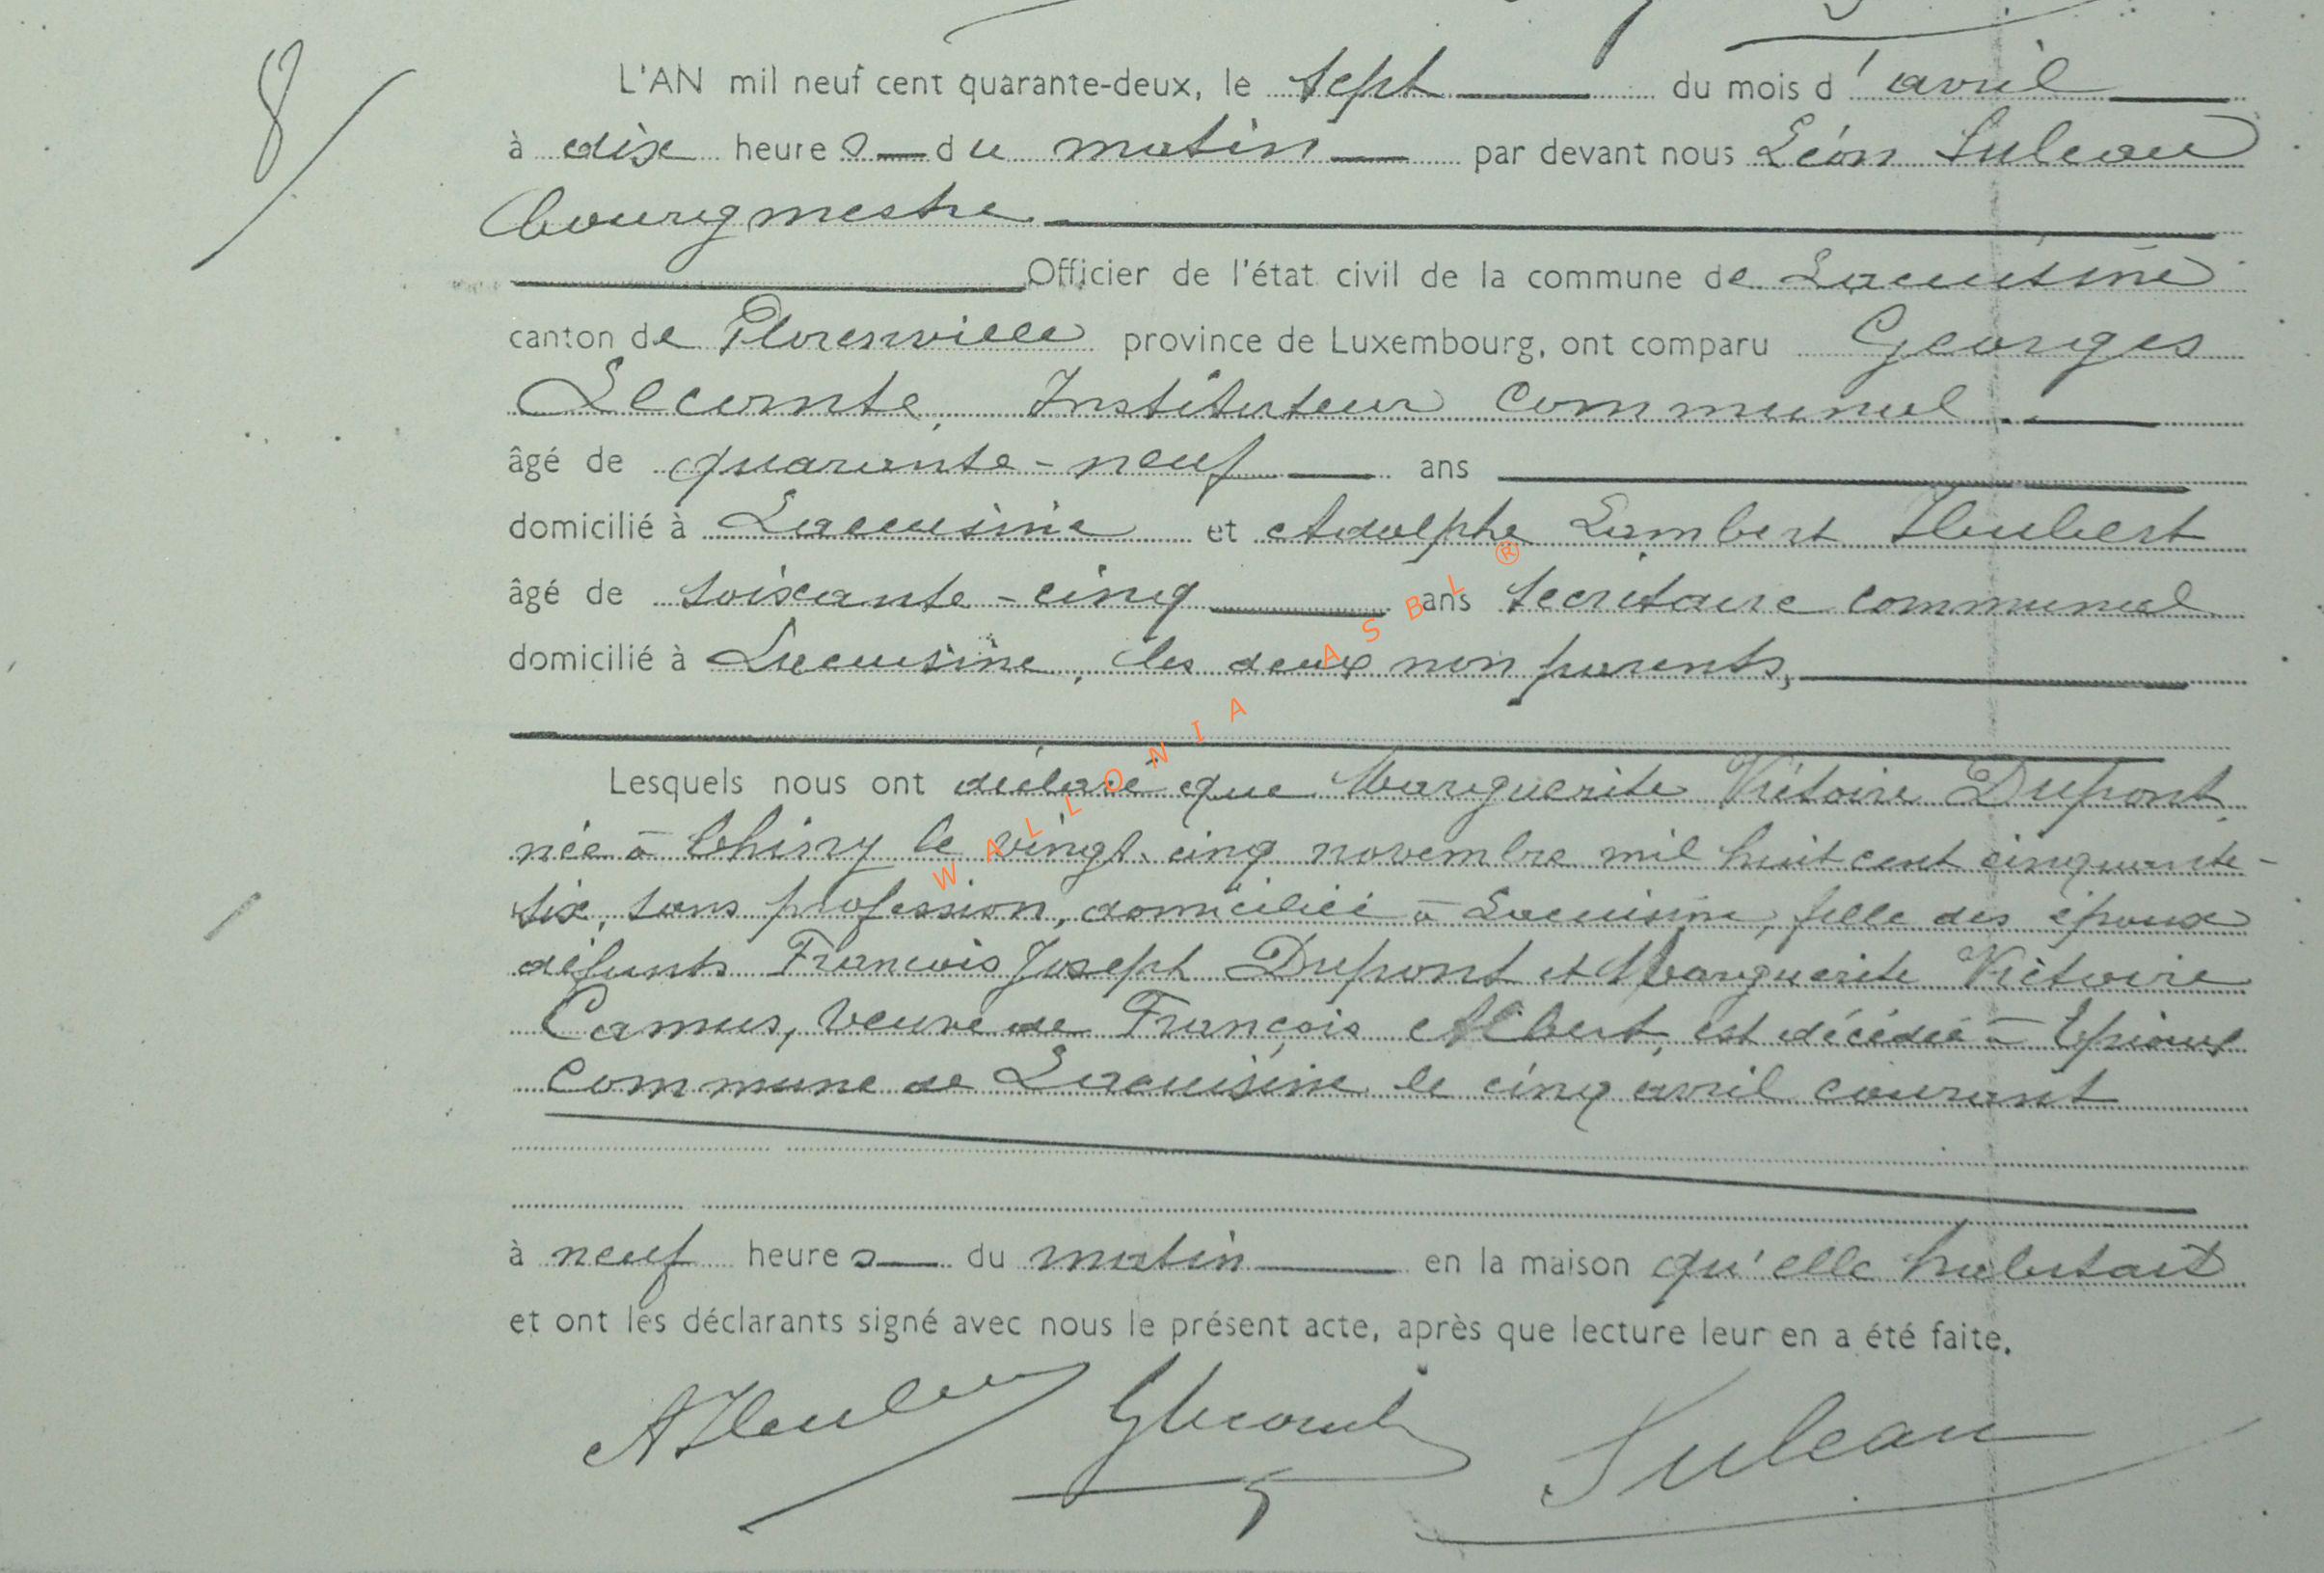 8/
L'AN mil neuf cent quarante-deux, le sept du mois d'avril
à dix heures du matin par devant nous Léon Suleau
bourgmestre
Officier de l'état civil de la commune de Lacuisine
canton de Florenville province de Luxembourg, ont comparu Georges
Lecomte, Instituteur communal
âgé de quarante-neuf ans
domicilié à Lacuisine et Adolphe Lambert Hubert
âgé de soixante-cinq ans secrétaire communal
domicilié à Lacuisine, les deux non parents,
Lesquels nous ont déclaré que Marguerite Victoire Dupont
née à Chiny le vingt-cinq novembre mil huit cent cinquante-
six, sans profession, domiciliée à Lacuisine, fille des époux
défunts François Joseph Dupont et Marguerite Victoire
Camus, veuve de François Albert, est décédée à Epioux
commune de Lacuisine le cinq avril courant
à neuf heures du matin en la maison qu'elle habitait
et ont les déclarants signé avec nous le présent acte, après que lecture leur en a été faite.
AHubert GLecomte Suleau
WALLONIA ASBL ®